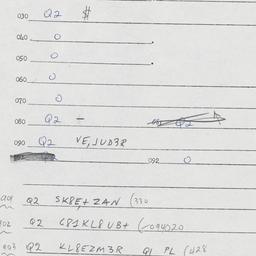 030 Q2 $
040 0
050 0
060 0
070 0
080 Q2 -
090 Q2 VE,JUD38
092 0
Q2 SK8E+ZAN (330
902 Q2 C81KL8UB+ (-094020
903 Q2 KL8EZM3R Q1 PL (428